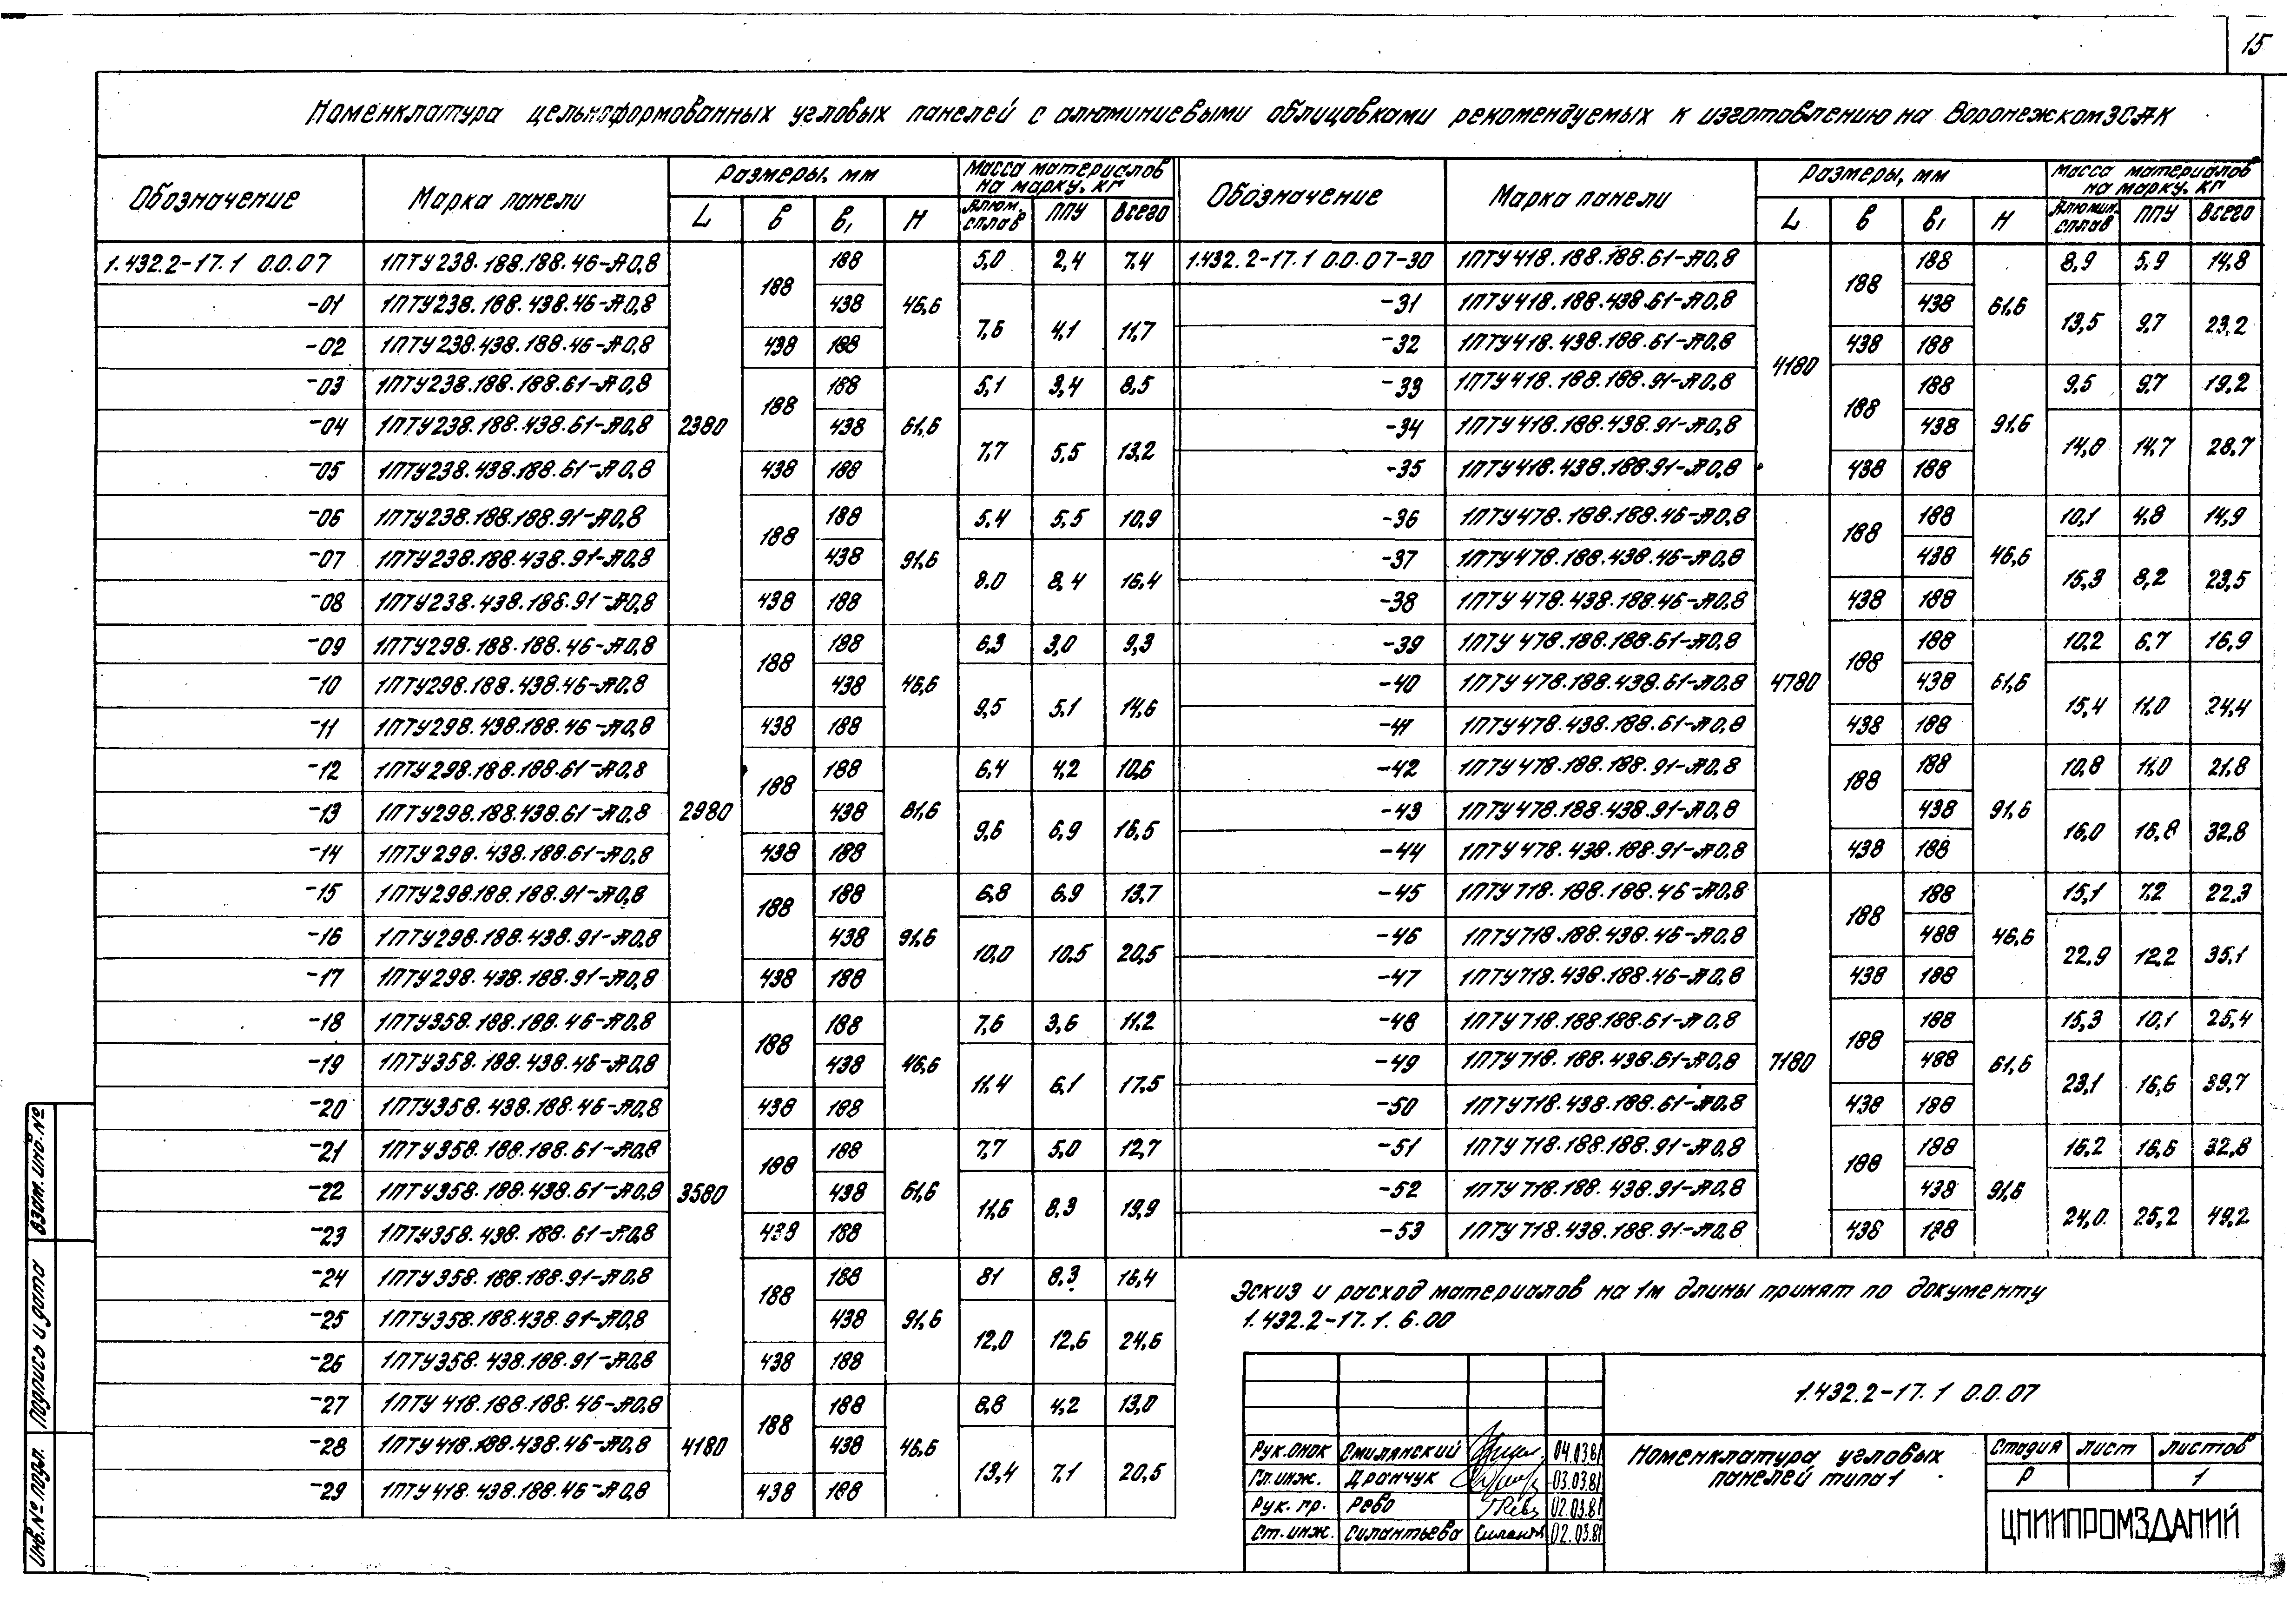 15
Номенклатура цельноформованных угловых панелей с алюминиевыми облицовками рекомендуемых к изготовлению на Воронежском ЗСАК
Обозначение Марка панели Размеры, мм Масса материалов на марку, кг
L в в₁ Н Алюм. сплав ППУ Всего
1.432.2-17.1 0.0.07 1ПТУ238.188.188.46-А0,8 2380 188 188 46,6 5,0 2,4 7,4
-01 1ПТУ238.188.438.46-А0,8 438 7,6 4,1 11,7
-02 1ПТУ238.438.188.46-А0,8 438 188
-03 1ПТУ238.188.188.61-А0,8 188 188 61,6 5,1 3,4 8,5
-04 1ПТУ238.188.438.61-А0,8 438 7,7 5,5 13,2
-05 1ПТУ238.438.188.61-А0,8 438 188
-06 1ПТУ238.188.188.91-А0,8 188 188 91,6 5,4 5,5 10,9
-07 1ПТУ238.188.438.91-А0,8 438 8,0 8,4 16,4
-08 1ПТУ238.438.188.91-А0,8 438 188
-09 1ПТУ298.188.188.46-А0,8 2980 188 188 46,6 6,3 3,0 9,3
-10 1ПТУ298.188.438.46-А0,8 438 9,5 5,1 14,6
-11 1ПТУ298.438.188.46-А0,8 438 188
-12 1ПТУ298.188.188.61-А0,8 188 188 61,6 6,4 4,2 10,6
-13 1ПТУ298.188.438.61-А0,8 438 9,6 6,9 16,5
-14 1ПТУ298.438.188.61-А0,8 438 188
-15 1ПТУ298.188.188.91-А0,8 188 188 91,6 6,8 6,9 13,7
-16 1ПТУ298.188.438.91-А0,8 438 10,0 10,5 20,5
-17 1ПТУ298.438.188.91-А0,8 438 188
-18 1ПТУ358.188.188.46-А0,8 3580 188 188 46,6 7,6 3,6 11,2
-19 1ПТУ358.188.438.46-А0,8 438 11,4 6,1 17,5
-20 1ПТУ358.438.188.46-А0,8 438 188
-21 1ПТУ358.188.188.61-А0,8 188 188 61,6 7,7 5,0 12,7
-22 1ПТУ358.188.438.61-А0,8 438 11,6 8,3 19,9
-23 1ПТУ358.438.188.61-А0,8 438 188
-24 1ПТУ358.188.188.91-А0,8 188 188 91,6 8,1 8,3 16,4
-25 1ПТУ358.188.438.91-А0,8 438 12,0 12,6 24,6
-26 1ПТУ358.438.188.91-А0,8 438 188
-27 1ПТУ418.188.188.46-А0,8 4180 188 188 46,6 8,8 4,2 13,0
-28 1ПТУ418.188.438.46-А0,8 438 13,4 7,1 20,5
-29 1ПТУ418.438.188.46-А0,8 438 188
Обозначение Марка панели Размеры, мм Масса материалов на марку, кг
L в в₁ Н Алюмин. сплав ППУ Всего
1.432.2-17.1 0.0.07-30 1ПТУ418.188.188.61-А0,8 4180 188 188 61,6 8,9 5,9 14,8
-31 1ПТУ418.188.438.61-А0,8 438 13,5 9,7 23,2
-32 1ПТУ418.438.188.61-А0,8 438 188
-33 1ПТУ418.188.188.91-А0,8 188 188 91,6 9,5 9,7 19,2
-34 1ПТУ418.188.438.91-А0,8 438 14,0 14,7 28,7
-35 1ПТУ418.438.188.91-А0,8 438 188
-36 1ПТУ478.188.188.46-А0,8 4780 188 188 46,6 10,1 4,8 14,9
-37 1ПТУ478.188.438.46-А0,8 438 15,3 8,2 23,5
-38 1ПТУ478.438.188.46-А0,8 438 188
-39 1ПТУ478.188.188.61-А0,8 188 188 61,6 10,2 6,7 16,9
-40 1ПТУ478.188.438.61-А0,8 438 15,4 11,0 24,4
-41 1ПТУ478.438.188.61-А0,8 438 188
-42 1ПТУ478.188.188.91-А0,8 188 188 91,6 10,8 11,0 21,8
-43 1ПТУ478.188.438.91-А0,8 438 16,0 16,8 32,8
-44 1ПТУ478.438.188.91-А0,8 438 188
-45 1ПТУ718.188.188.46-А0,8 7180 188 188 46,6 15,1 7,2 22,3
-46 1ПТУ718.188.438.46-А0,8 488 22,9 12,2 35,1
-47 1ПТУ718.438.188.46-А0,8 438 188
-48 1ПТУ718.188.188.61-А0,8 188 188 61,6 15,3 10,1 25,4
-49 1ПТУ718.188.438.61-А0,8 488 23,1 16,6 39,7
-50 1ПТУ718.438.188.61-А0,8 438 188
-51 1ПТУ718.188.188.91-А0,8 188 188 91,6 16,2 16,6 32,8
-52 1ПТУ718.188.438.91-А0,8 438 24,0 25,2 49,2
-53 1ПТУ718.438.188.91-А0,8 438 188
Эскиз и расход материалов на 1м длины принят по документу
1.432.2-17.1.6.00
1.432.2-17.1 0.0.07
Рук. ОНОК Смилянский 04.03.81
Гл. инж. Дранчук 03.03.81
Рук. гр. Рево 02.03.81
Ст. инж. Силантьева 02.03.81
Номенклатура угловых
панелей типа 1
Стадия Лист Листов
Р 1
ЦНИИПРОМЗДАНИЙ
Инв. № подл. Подпись и дата Взам. инв. №